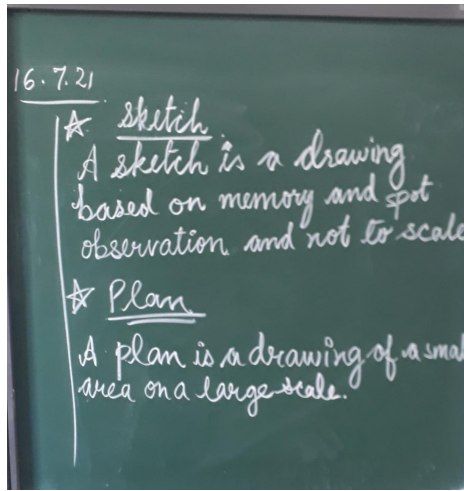 16.7.21
☆ Sketch
A sketch is a drawing
based on memory and spot
observation and not to scale
☆ Plan
A plan is a drawing of a smal
area on a large scale.